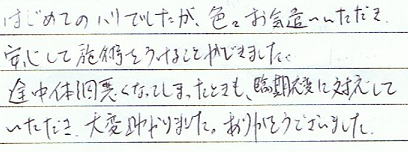 はじめてのハリでしたが、色々お気遣いいただき
安心して施術をうけることができました。
途中体調悪くなってしまったときも、臨機応変に対応して
いただき、大変助かりました。ありがとうございました。